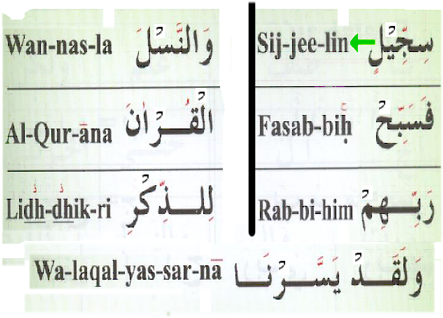 Wan-nas-la وَالنَّسْلَ Sij-jee-lin سِجِّيْلٍ
Al-Qur-āna الْقُرْاٰنَ Fasab-biḥ فَسَبِّحْ
Lidh-dhik-ri لِلذِّكْرِ Rab-bi-him رَبِّهِمْ
Wa-laqal-yas-sar-nā وَلَقَدْ يَسَّرْنَا